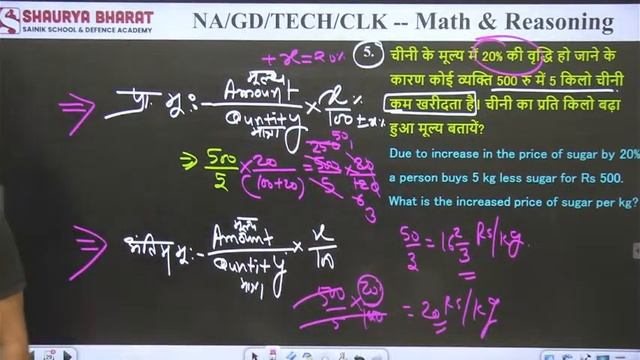 SHAURYA BHARAT
SAINIK SCHOOL & DEFENCE ACADEMY
NA/GD/TECH/CLK -- Math & Reasoning
+x=20%
5.
चीनी के मूल्य में 20% की वृद्धि हो जाने के
कारण कोई व्यक्ति 500 रु में 5 किलो चीनी
कम खरीदता है। चीनी का प्रति किलो बढ़ा
हुआ मूल्य बतायें?
Due to increase in the price of sugar by 20%
a person buys 5 kg less sugar for Rs 500.
What is the increased price of sugar per kg?
⇒ प्रा. मू:- मूल्य Amount / Quntity मात्रा × x% / 100±x%
⇒ 500/5 × 20/(100+20) = 500/5 × 20/120
50
250
6
3
50/3 = 16 2/3 Rs/kg.
⇒ अंतिम मू:- मूल्य Amount / Quntity मात्रा × x/100
500/5 × 20/100 = 20 Rs/kg